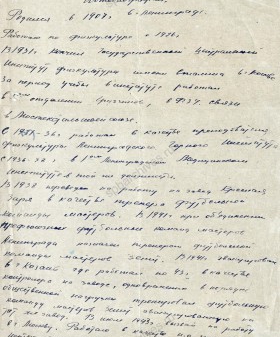 Родился в 1907г. в Ленинграде.
Работаю по физкультуре с 1926.
В 1931г. кончил Государственный Центральный
Институт физкультуры имени Сталина в Москве
За период учебы в институте работал
в отделении
в
С 1931-36г работал в качестве преподавателя
физкультуры Ленинградского Горного Института
с 1936-38 в 1ом Ленинградском Медицинском
Институте в той же должности.
В 1938 переведен на работу на завод Красная
Заря в качестве тренера футбольной
команды мастеров. В 1941г при объединении
футбольных команд мастеров
Ленинграда назначен тренером футбольной
команды мастеров Зенит. В 1941г. эвакуирован
в г. Казань где работал по 43г. в качестве
контролера на заводе, одновременно в порядке
общественной нагрузки тренировал футбольную
команду мастеров Зенит эвакуированную на
тот же завод. В июле 1943г. вызван на работу
в г. Москву. Работал в качестве